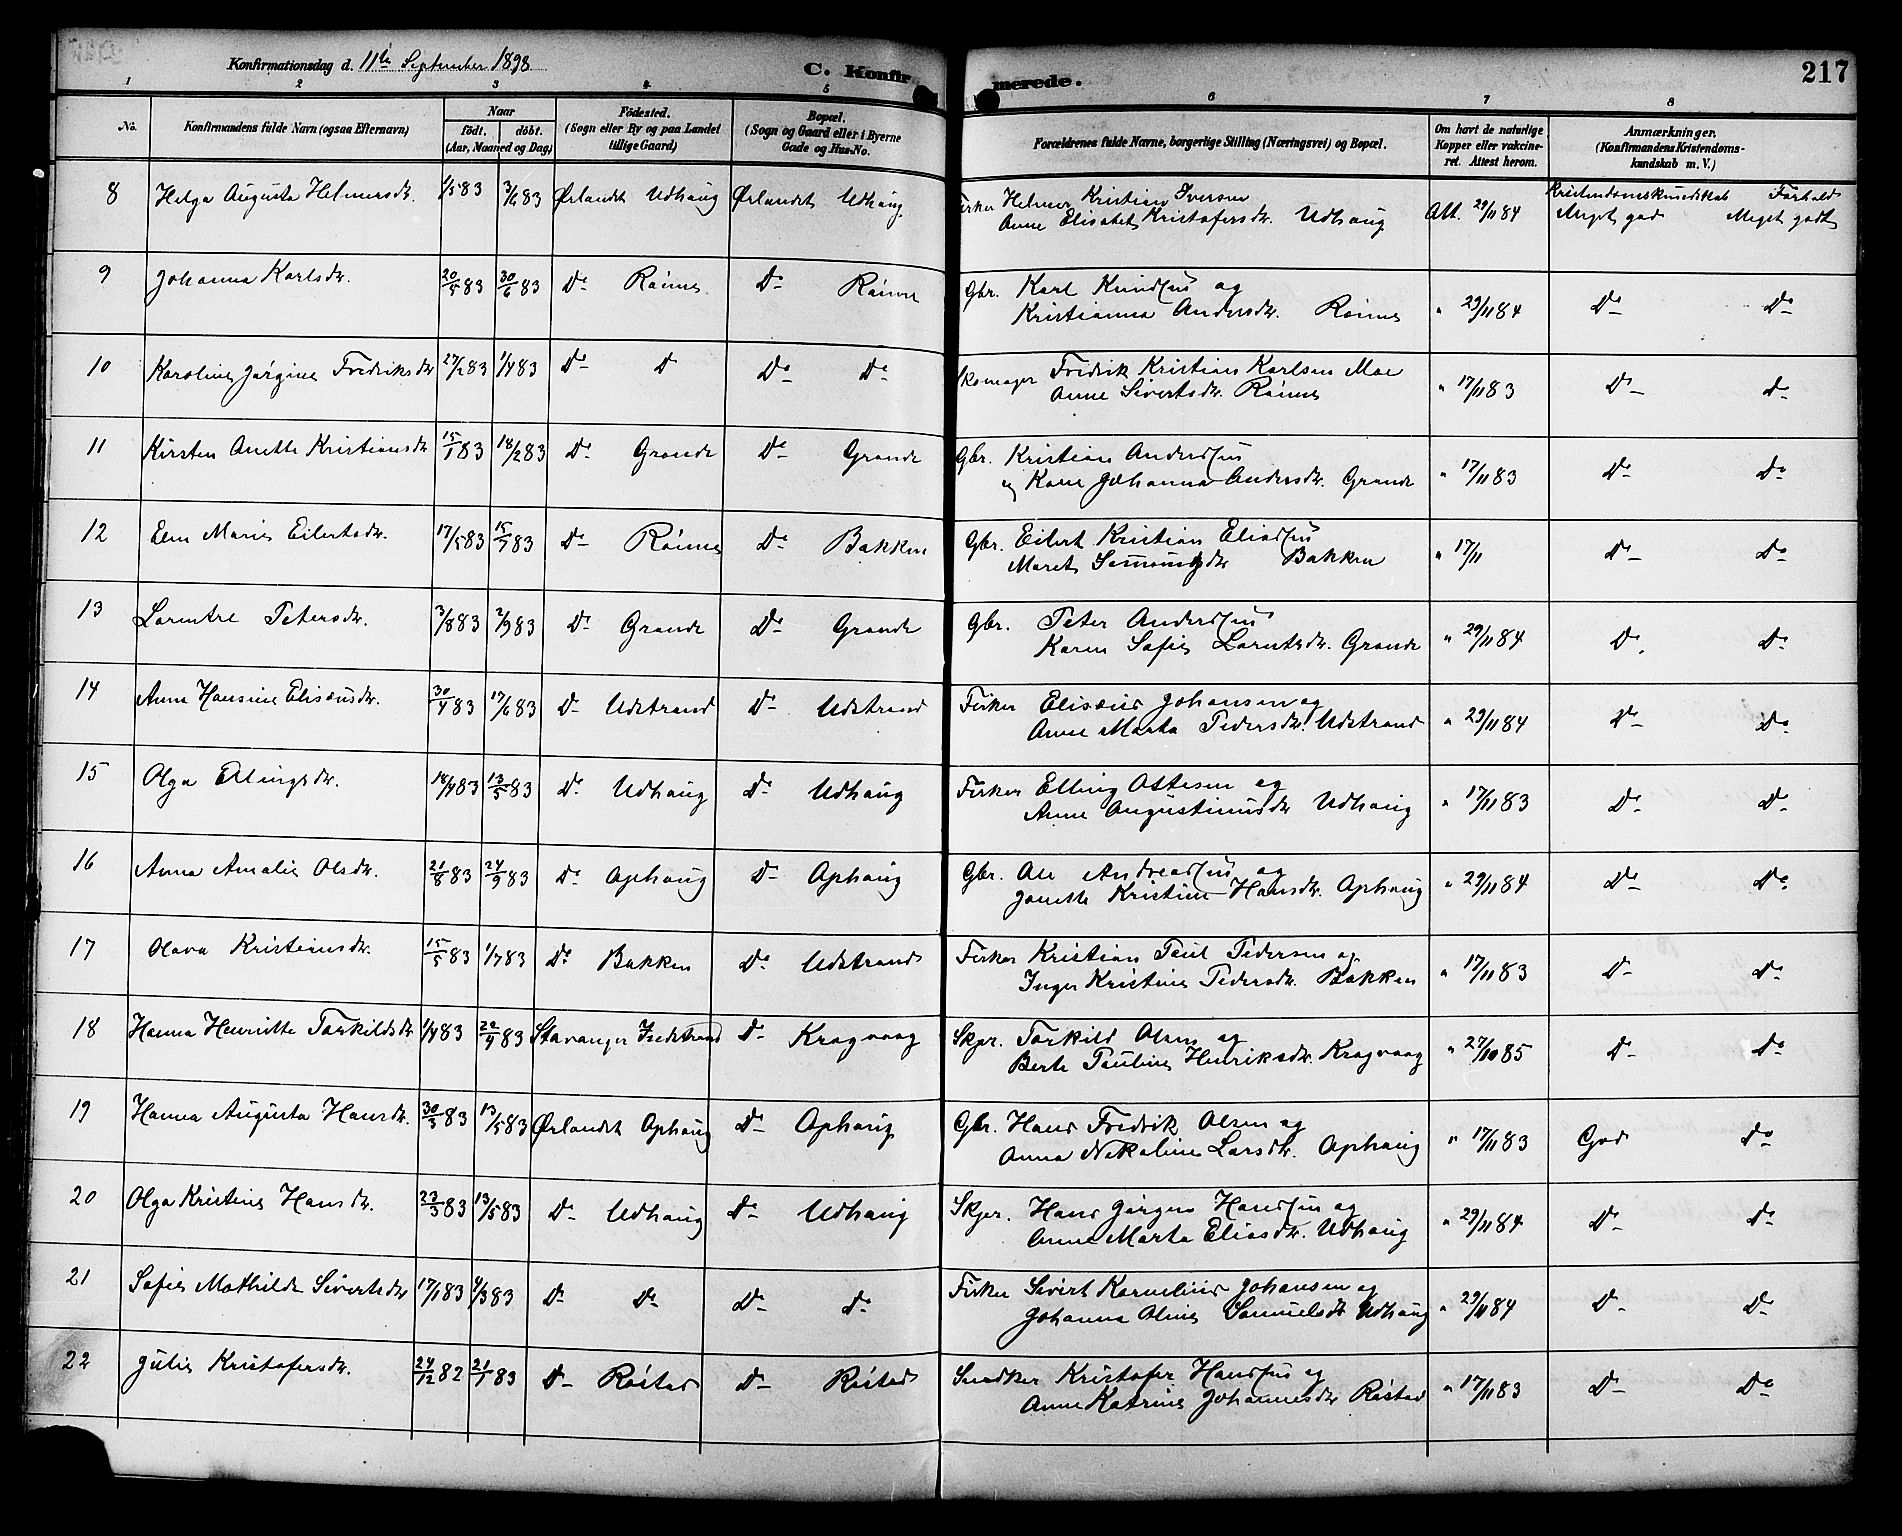 Konfirmationsdag d. 11te September 1898
C. Konfirmerede.
217
1 2 3 4 5 6 7 8
No.
Konfirmandens fulde Navn (ogsaa Efternavn)
Naar
födt. döbt.
(Aar, Maaned og Dag)
Födested.
(Sogn eller By og paa Landet
tillige Gaard)
Bopæl.
(Sogn og Gaard eller i Byerne
Gade og Hus-No.
Forældrenes fulde Navne, borgerlige Stilling (Næringsvei) og Bopæl.
Om havt de naturlige
Kopper eller vakcine-
ret. Attest herom.
Anmærkninger.
(Konfirmandens Kristendoms-
kundskab m. V.)
8 Helga Augusta Helmersdr. 1/5 83 3/6 83 Ørlandet Udhaug Ørlandet Udhaug Fisker Helmer Kristian Iversen Att. 29/11 84 Kristendomskundskab Forhold
Anne Elisabet Kristofersdr. Udhaug Meget god Meget godt
9 Johanna Karlsdr. 20/5 83 30/6 83 Do Rönne Do Rönne Gbr. Karl Knudsen og " 29/11 84 Do Do
Kristianna Andersdr. Rönne
10 Karoline Jörgine Fredriksdr 27/2 83 1/4 83 Do D Do Do Skomager Fredrik Kristian Karlsen Moe " 17/11 83 Do Do
Anne Sivertsdr. Rönne
11 Kirsten Anette Kristiansdr 15/1 83 18/2 83 Do Grande Do Grande Gbr. Kristian Andersen " 17/11 83 Do Do
og Johanna Andersdr. Grande
12 Marie Eilertsdr. 17/5 83 15/7 83 Do Rönne Do Bakken Gbr. Eilert Kristian Eliassen " 17/11 Do Do
Maret Bakken
13 Lorntse Petersdr. 3/8 83 2/9 83 Do Grande Do Grande Gbr. Peter Andersen " 29/11 84 Do Do
Karen Sofie Lorntsdr. Grande
14 Anne Hansine Elisæusdr. 30/4 83 17/6 83 Do Udstrand Do Udstrand Fisker Elisæus Johansen og " 29/11 84 Do Do
Anne Marta Pedersdr. Udstrand
15 Olga Ellingsdr. 18/4 83 13/5 83 Do Udhaug Do Udhaug Fisker Elling Ottesen og " 17/11 83 Do Do
Anne Augustinusdr Udhaug
16 Anna Amalie Olsdr. 21/8 83 24/9 83 Do Ophaug Do Ophaug Gbr. Ole Andreassen og " 29/11 84 Do Do
Jonette Kristine Hansdr. Ophaug
17 Olava Kristiansdr. 15/5 83 1/7 83 Do Bakken Do Udstrand Fisker Kristian Paul Pedersen og " 17/11 83 Do Do
Inger Kristine Pedersdr. Bakken
18 Hanna Henriette Torkildsdr 1/4 83 22/4 83 Stavanger Do Kragvaag Skpr. Torkild Olsen og " 27/10 85 Do Do
Berte Pauline Henriksdr. Kragvaag
19 Hanna Augusta Hansdr. 30/3 83 13/5 83 Ørlandet Ophaug Do Ophaug Gbr. Hans Fredrik Olsen og " 17/11 83 God Do
Anna Nikoline Larsdtr. Ophaug
20 Olga Kristine Hansdr. 23/3 83 13/5 83 Do Udhaug Do Udhaug Skpr. Hans Jörgen Hansen og " 29/11 84 Do Do
Anne Marta Eliasdr. Udhaug
21 Sofie Mathilde Sivertsdr 17/1 83 4/3 83 Do Do Do Do Fisker Sivert Kornelius Johansen og " 29/11 84 Do Do
Johanna Oline Samuelsdr Udhaug
22 Julie Kristofersdr. 24/12 82 21/1 83 Do Röstad Do Röstad Snedker Kristofer Hansen og " 17/11 83 Do Do
Anne Katrine Johannesdr Röstad